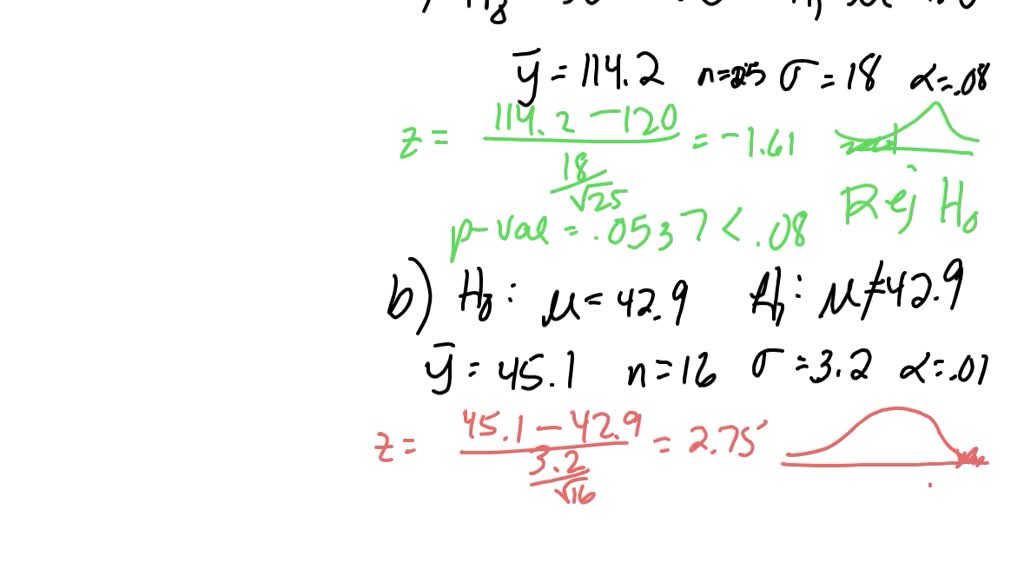 ȳ = 114.2 n=25 σ = 18 α=.08
z = (114.2 - 120)/(18/√25) = -1.61
Rej H₀
p-val = .0537 < .08
b) H₀: μ = 42.9 H₁: μ ≠ 42.9
ȳ = 45.1 n = 16 σ = 3.2 α = .01
z = (45.1 - 42.9)/(3.2/√16) = 2.75